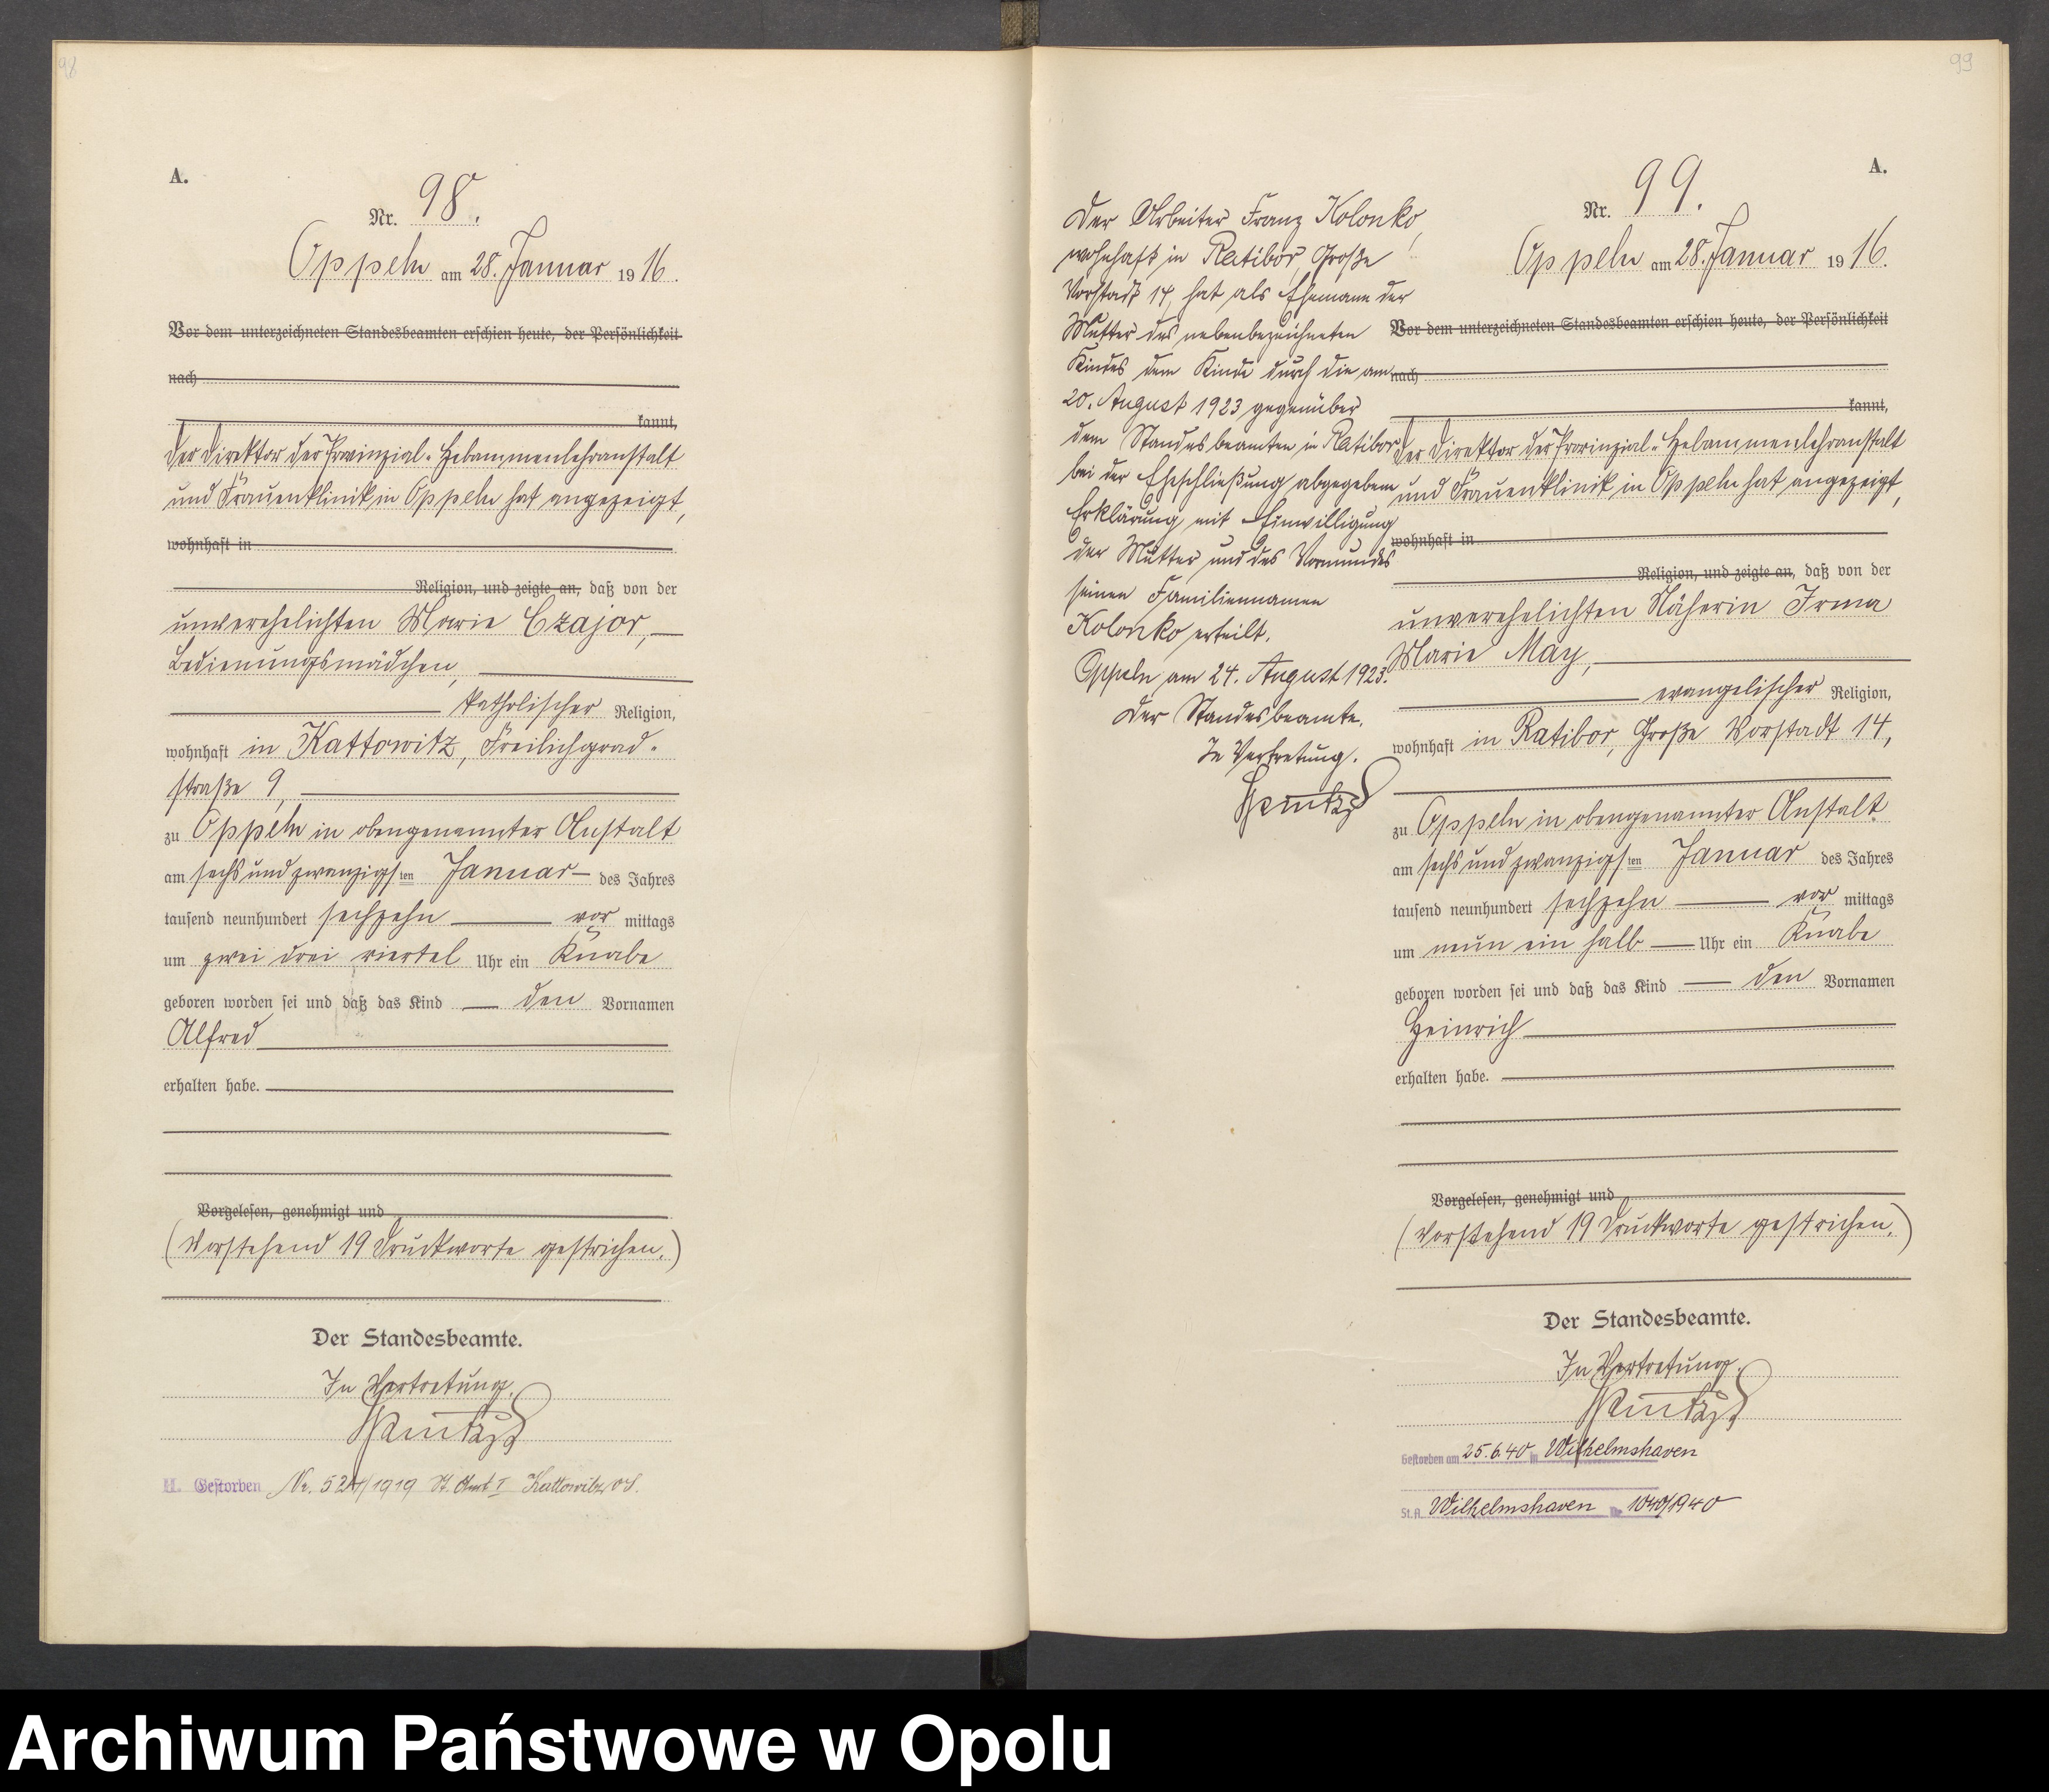 98
A.
Nr. 98.
Oppeln am 28. Januar 1916.
Vor dem unterzeichneten Standesbeamten erschien heute, der Persönlichkeit
nach
kannt,
Der Direktor der Provinzial-Hebammenlehranstalt
und Frauenklinik in Oppeln hat angezeigt,
wohnhaft in
Religion, und zeigte an, daß von der
unverehelichten Marie Czajor,
Bedienungsmädchen,
katholischer Religion,
wohnhaft in Kattowitz, Freilichgrad-
straße 9,
zu Oppeln in obengenannter Anstalt
am sechsundzwanzigsten Januar des Jahres
tausend neunhundert sechzehn vor mittags
um zwei drei viertel Uhr ein Knabe
geboren worden sei und daß das Kind den Vornamen
Alfred
erhalten habe.
Vorgelesen, genehmigt und
(Vorstehend 19 Druckworte gestrichen.)
Der Standesbeamte.
In Vertretung.
H. Gestorben Nr. 524/1919 St. Amt I Kattowitz O/S.
99
A.
Nr. 99.
Oppeln am 28. Januar 1916.
Vor dem unterzeichneten Standesbeamten erschien heute, der Persönlichkeit
nach
kannt,
Der Direktor der Provinzial-Hebammenlehranstalt
und Frauenklinik in Oppeln hat angezeigt,
wohnhaft in
Religion, und zeigte an, daß von der
unverehelichten Näherin Irma
Marie May,
evangelischer Religion,
wohnhaft in Ratibor, Große Vorstadt 14,
zu Oppeln in obengenannter Anstalt
am sechsundzwanzigsten Januar des Jahres
tausend neunhundert sechzehn vor mittags
um neun ein halb Uhr ein Knabe
geboren worden sei und daß das Kind den Vornamen
Heinrich
erhalten habe.
Vorgelesen, genehmigt und
(Vorstehend 19 Druckworte gestrichen.)
Der Standesbeamte.
In Vertretung.
Gestorben am 25.6.40 in Wilhelmshaven
St.A. Wilhelmshaven Nr. 1040/1940
Der Arbeiter Franz Kolonko,
wohnhaft in Ratibor, Große
Vorstadt 14, hat als Ehemann der
Mutter des nebenbezeichneten
Kindes dem Kinde durch die am
20. August 1923 gegenüber
dem Standesbeamten in Ratibor
bei der Eheschließung abgegebene
Erklärung mit Einwilligung
der Mutter und des Vormundes
seinen Familiennamen
Kolonko erteilt.
Oppeln am 24. August 1923.
Der Standesbeamte.
In Vertretung.
Archiwum Państwowe w Opolu